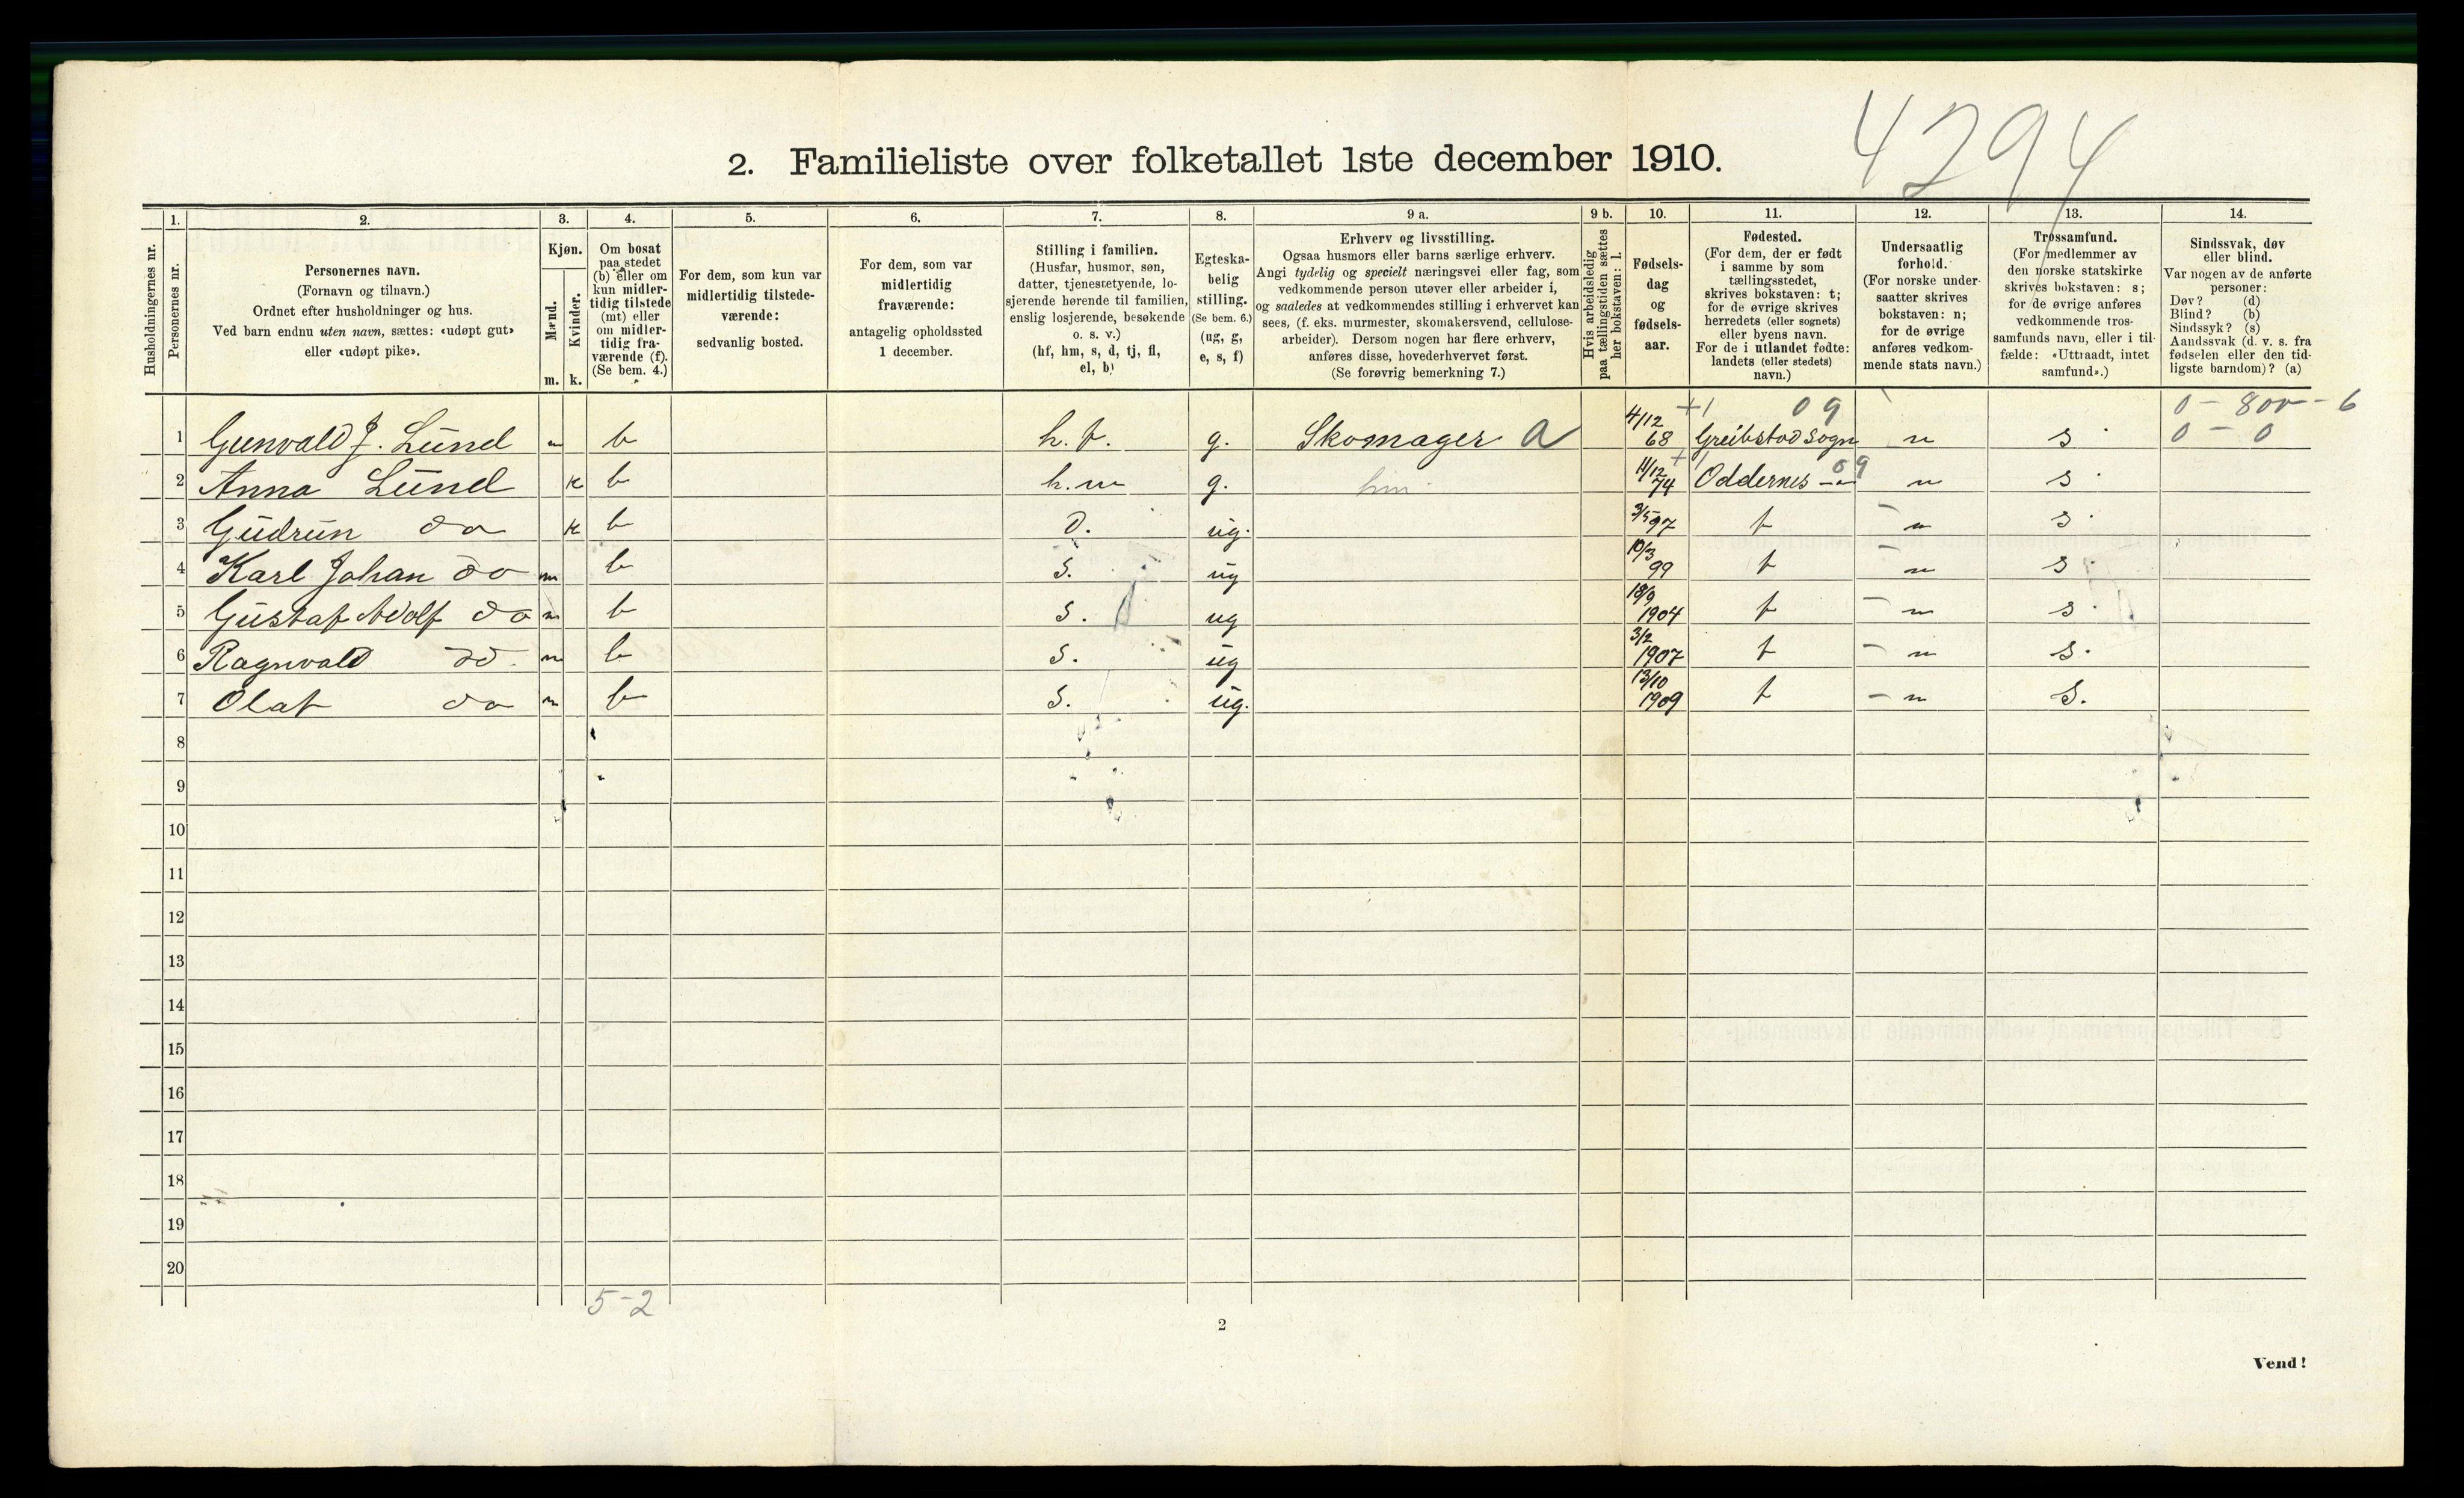 4294
2. Familieliste over folketallet 1ste december 1910.
Husholdningernes nr.
1.
Personernes nr.
2.
Personernes navn.
(Fornavn og tilnavn.)
Ordnet efter husholdninger og hus.
Ved barn endnu uten navn, sættes: «udøpt gut»
eller «udøpt pike».
3.
Kjøn.
Mænd.
Kvinder.
m. k.
4.
Om bosat
paa stedet
(b) eller om
kun midler-
tidig tilstede
(mt) eller
om midler-
tidig fra-
værende (f).
(Se bem. 4.)
5.
For dem, som kun var
midlertidig tilstede-
værende:
sedvanlig bosted.
6.
For dem, som var
midlertidig
fraværende:
antagelig opholdssted
1 december.
7.
Stilling i familien.
(Husfar, husmor, søn,
datter, tjenestetyende, lo-
sjerende hørende til familien,
enslig losjerende, besøkende
o. s. v.)
(hf, hm, s, d, tj, fl,
el, b)
8.
Egteska-
belig
stilling.
(Se bem. 6.)
(ug, g,
e, s, f)
9 a.
Erhverv og livsstilling.
Ogsaa husmors eller barns særlige erhverv.
Angi tydelig og specielt næringsvei eller fag, som
vedkommende person utøver eller arbeider i,
og saaledes at vedkommendes stilling i erhvervet kan
sees, (f. eks. murmester, skomakersvend, cellulose-
arbeider). Dersom nogen har flere erhverv,
anføres disse, hovederhvervet først.
(Se forøvrig bemerkning 7.)
9 b.
Hvis arbeidsledig
paa tællingstiden sættes
her bokstaven: l.
10.
Fødsels-
dag
og
fødsels-
aar.
11.
Fødested.
(For dem, der er født
i samme by som
tællingsstedet,
skrives bokstaven: t;
for de øvrige skrives
herredets (eller sognets)
eller byens navn.
For de i utlandet fødte:
landets (eller stedets)
navn.)
12.
Undersaatlig
forhold.
(For norske under-
saatter skrives
bokstaven: n;
for de øvrige
anføres vedkom-
mende stats navn.)
13.
Trossamfund.
(For medlemmer av
den norske statskirke
skrives bokstaven: s;
for de øvrige anføres
vedkommende tros-
samfunds navn, eller i til-
fælde: «Uttraadt, intet
samfund».)
14.
Sindssvak, døv
eller blind.
Var nogen av de anførte
personer:
Døv? (d)
Blind? (b)
Sindssyk? (s)
Aandssvak (d. v. s. fra
fødselen eller den tid-
ligste barndom)? (a)
4/12 +1 09 0 - 800 - 6
1 Gunvald J. Lund m b h.f. g. Skomager a 68 Greibstad sogn n s 0 - 0
2 Anna Lund k b h.m g. hm 11/12 74 Oddernes 09 n s
3 Gudrun do k b d. ug. 3/5 97 t n s
4 Karl Johan do m b s. ug 10/3 99 t n s
5 Gustaf Adolf do m b s. ug 18/9 1904 t n s
6 Ragnvald do m b s. ug 3/2 1907 t n s.
7 Olaf do m b s. ug. 13/10 1909 t n s.
8
9
10
11
12
13
14
15
16
17
18
19
20
5-2
2
Vend!